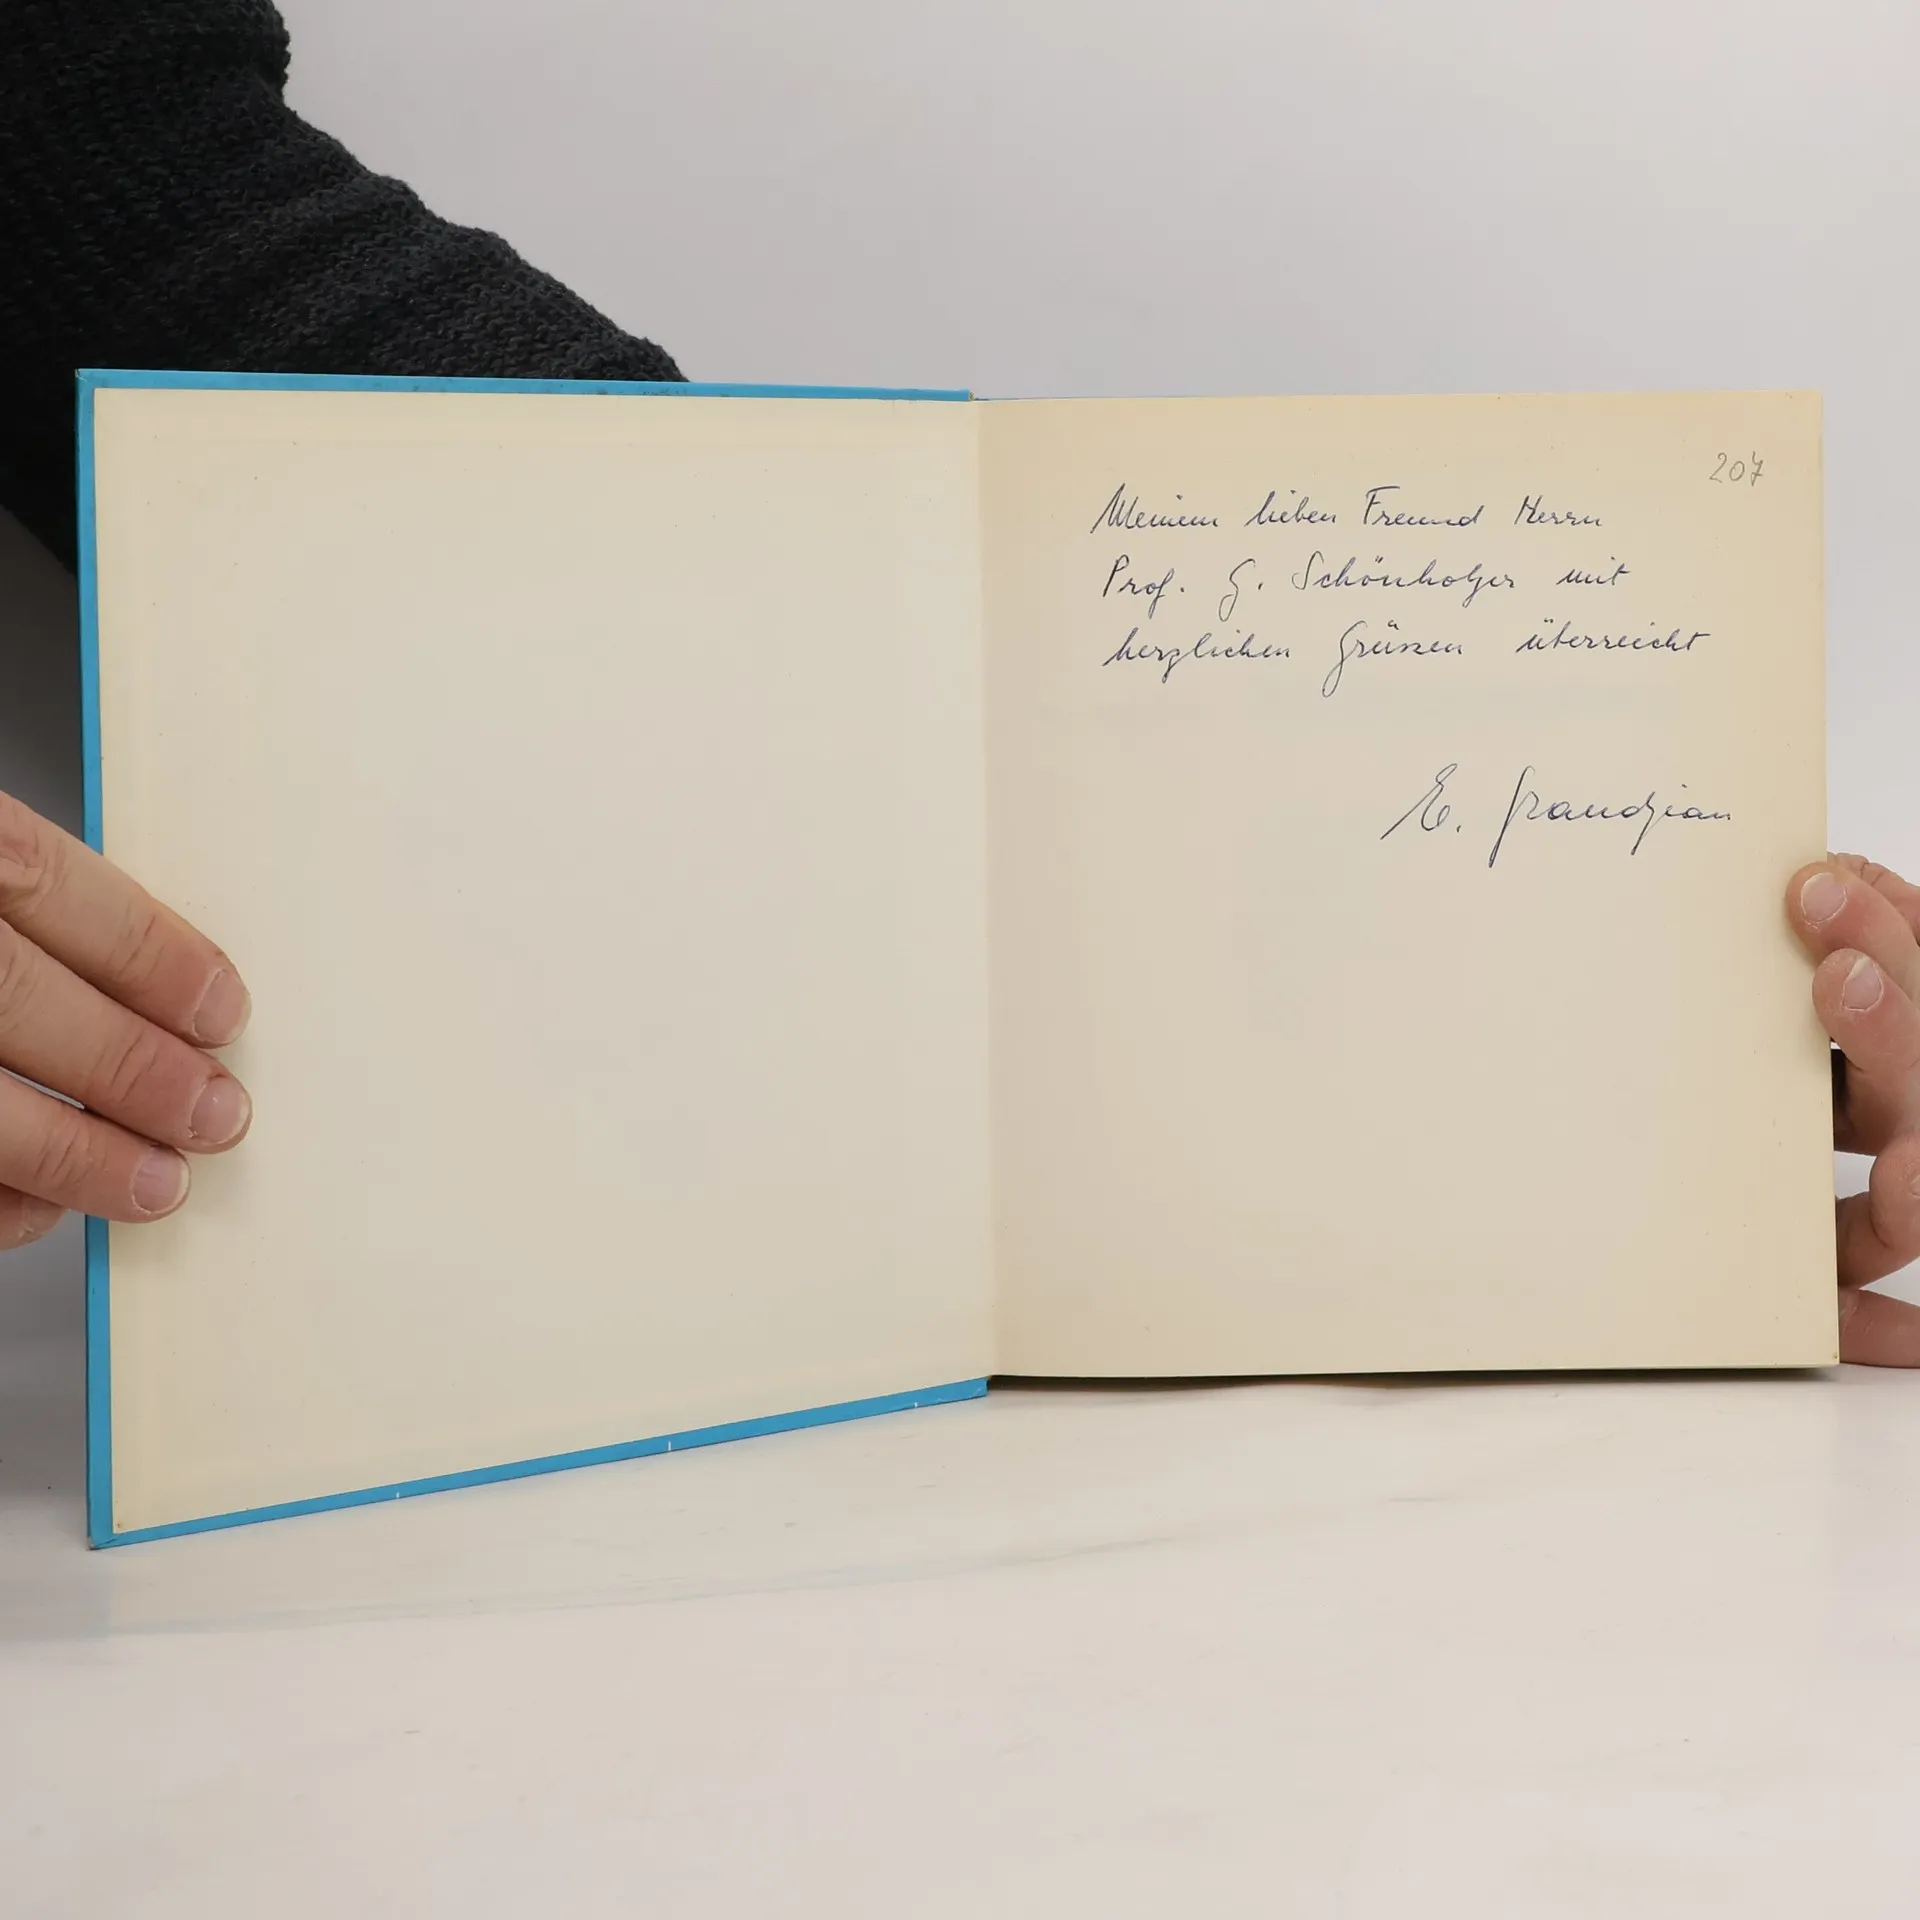 207
Meinem lieben Freund Herrn
Prof. G. Schönholzer mit
herzlichen Grüssen überreicht
E. Grandjean